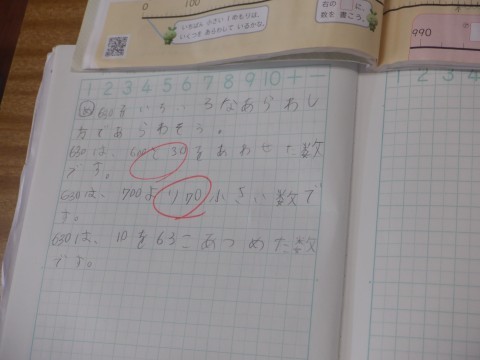 0 100
いちばん 小さい 1めもりは、
いくつを あらわして いるかな。
右の □に、
数を 書こう。
990
1 2 3 4 5 6 7 8 9 10 + −
1 2 3 4
め 630をいろいろなあらわし
方であらわそう。
630は、600と30をあわせた数
です。
630は、700より70小さい数で
す。
630は、10を63こあつめた数
です。